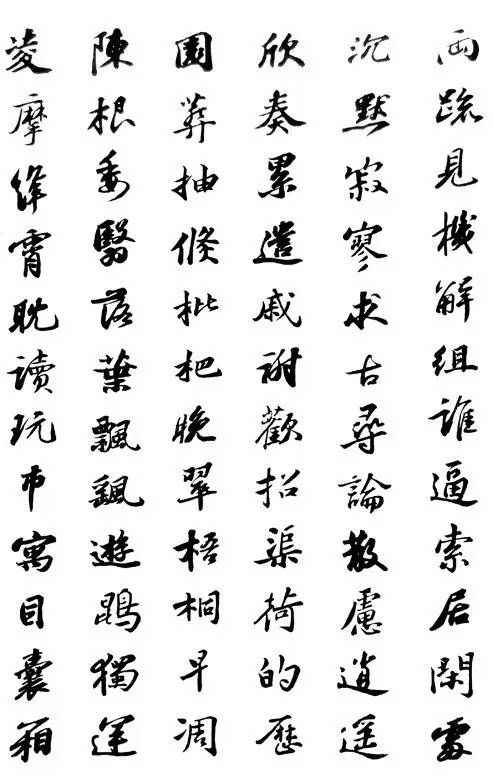 兩疏見機解組誰逼索居閑處
沉默寂寥求古尋論散慮逍遙
欣奏累遣戚謝歡招渠荷的歷
園莽抽條枇杷晚翠梧桐早凋
陳根委翳落葉飄颻遊鵾獨運
凌摩絳霄耽讀玩市寓目囊箱